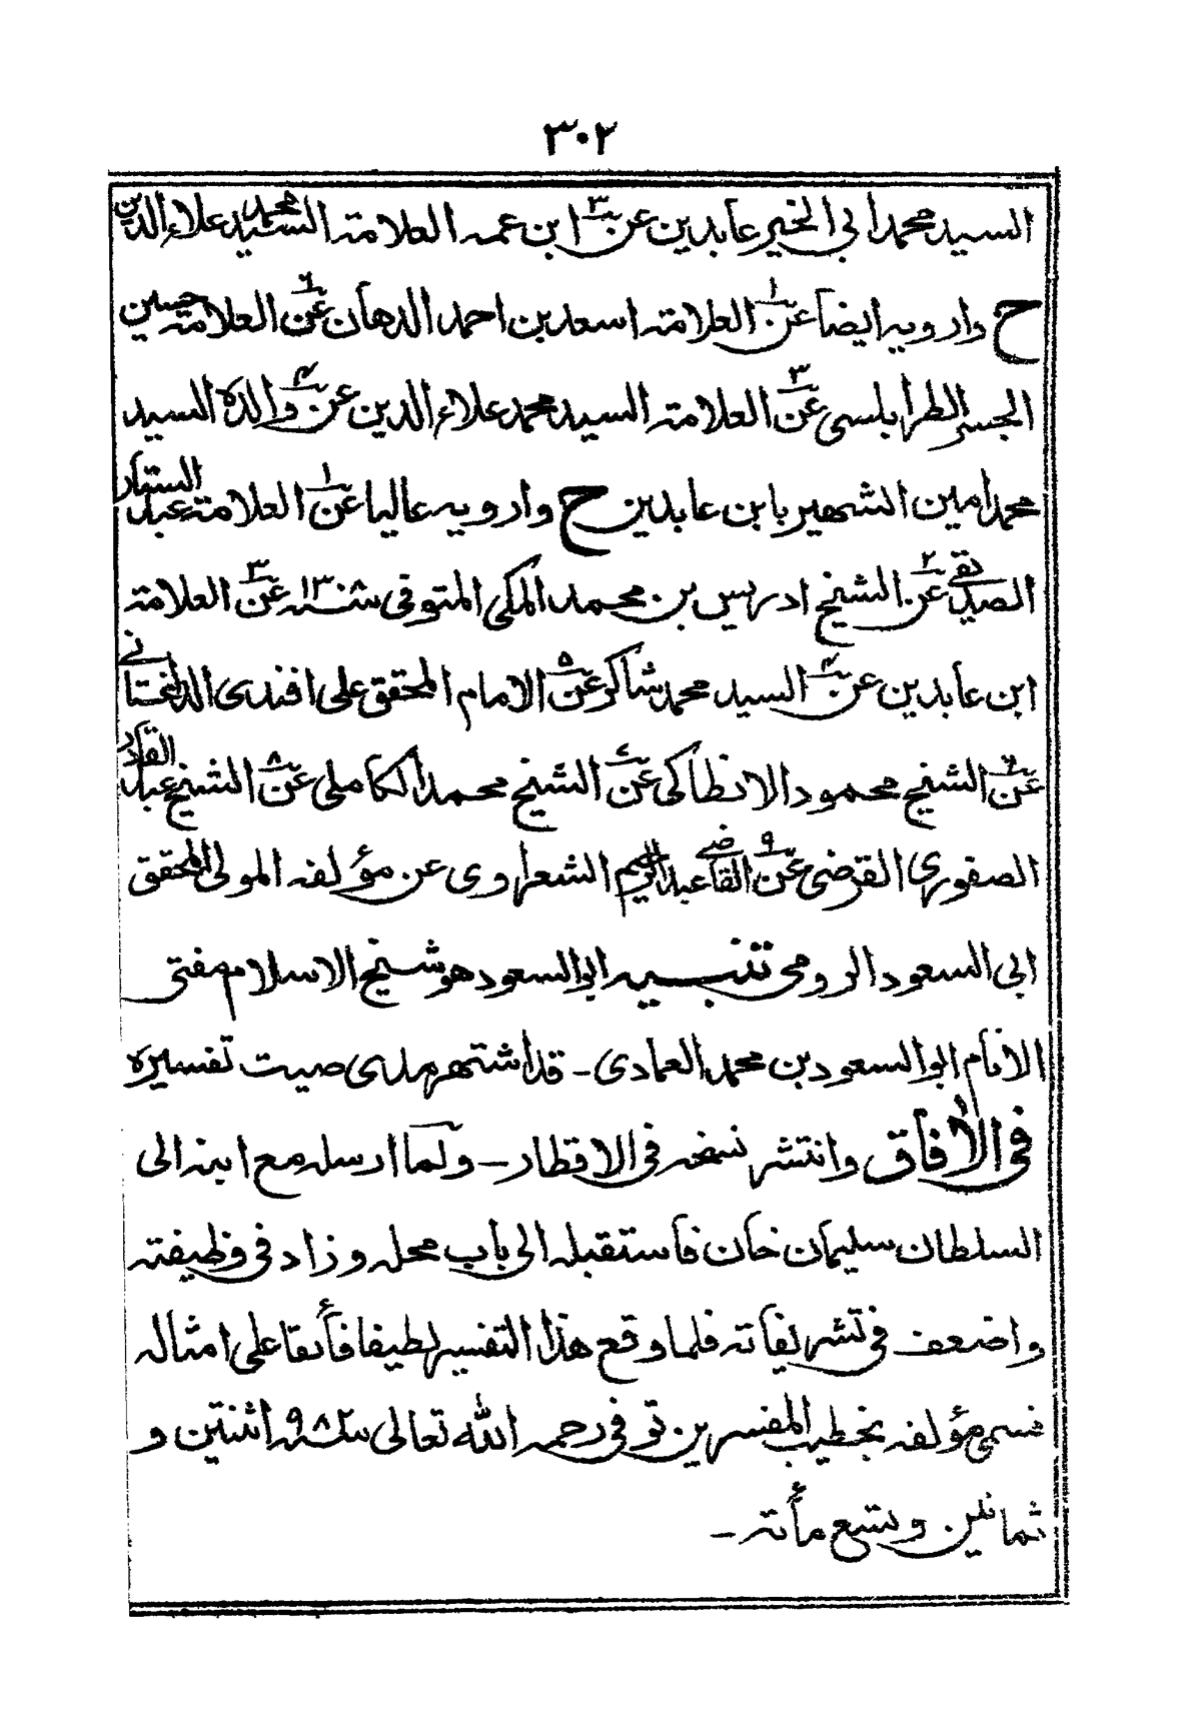 ٣٠٢
السيد محمد ابي الخير عابدين عن٣ ابن عمه العلامة السيد محمد علاء الدين
ح وارويه ايضا عن١ العلامة اسعد بن احمد الدهان عن٢ العلامة حسين
الجسر الطرابلسى عن٣ العلامة السيد محمد علاء الدين عن٤ والده السيد
محمد امين الشهير بابن عابدين ح وارويه عاليا عن١ العلامة عبد الستار
الصديقى عن٢ الشيخ ادريس بن محمد المكى المتوفى عن٣ العلامة
ابن عابدين عن٤ السيد محمد شاكر عن٥ الامام المحقق على افندى الداغستانى
عن٦ الشيخ محمود الانطاكى عن٧ الشيخ محمد الكاملى عن٨ الشيخ عبد القادر
الصفورى القرضى عن٩ القاضى عبد الرحيم الشعراوى عن مؤلفه المولى المحقق
ابى السعود الرومى تنبيه ابو السعود هو شيخ الاسلام مفتى
الانام ابو السعود بن محمد العمادى - قد اشتهر مدى صيت تفسيره
فى الأفاق وانتشر نسخه فى الاقطار - ولما ارسله مع ابنه الى
السلطان سليمان خان فاستقبله الى باب محله وزاد فى وظيفته
واضعف فى تشريفاته فلما وقع هذا التفسير لطيفا فأئقا على امثاله
فسمى مؤلفه بخطيب المفسرين توفى رحمه الله تعالى سنة ٩٨٢ اثنتين و
ثمانين وتسع مأئة -